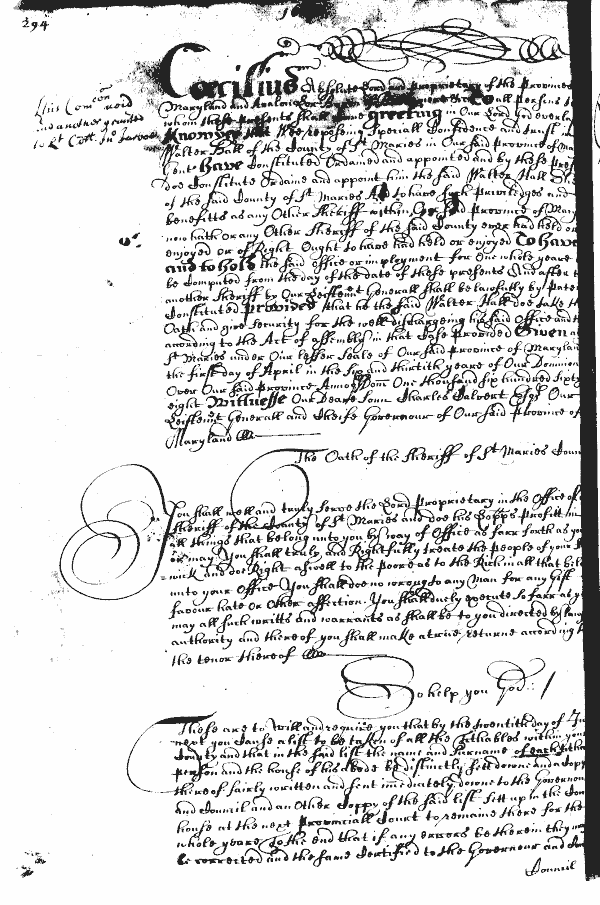 294
this Comcon void
and another granted
to Rt Cott. in
Cæcilius Absolute Lord and Proprietary of the Provinces
Maryland and Avalon Lord Baron of Baltemore &c To all Persons to
whom these presents shall come greeting in Our Lord God everla
Know yee that Wee reposeing Speciall Confidence and trust in
Walter Hall of the County of St Maries in Our said Province of Ma
Gent Have Constituted Ordained and appointed and by these Pre
doe Constitute Ordaine and appoint him the said Walter Hall
of the said County of St Maries And to have such Priviledges and
benefitts as any Other Sheriff within Our said Province of Mary
now hath or any Other Sheriff of the said County ever had held or
enjoyed or of Right Ought to have had held or enjoyed To have
and to hold the said office or imployment for One whole yeare
be Computed from the day of the date of these presents And after
another Sheriff by Our Leiftennt Generall shall be lawfully by Pate
Constituted Provided that he the said Walter Hall doe take th
Oath and give Security for the well dischargeing his said Office and
according to the Act of assembly in that Case Provided Given a
St Maries under Our lesser Seale of Our said Province of Maryland
the first day of April in the six and thirtith yeare of Our Dominion
Over Our said Province Annoq Dom One thousand six hundred sixty
eight Wittnesse Our Deare Sonn Charles Calvert Esqr Our
Leiftennt Generall and Cheife Governour of Our said Province of
Maryland
The Oath of the Sheriff of St Maries Coun
You shall well and truly serve the Lord Proprietary in the Office of
Sheriff of the County of St Maries and doe his Lopps Profitt in
all things that belong unto you by way of Office as farr forth as you
or may. You shall truly and Rightfully treate the people of your
wick and doe Right aswell to the Poore as to the Rich in all that bel
unto your Office You shall doe no wrong to any Man for any Gift
favour hate or Other affection. You shall duely execute so farr as y
may all such writts and warrants as shall be to you directed by law
authority and thereof you shall make a true returne according t
the tenor thereof
So help you God: /
These are to Will and require you that by the twentith day of
next you Cause a list to be taken of all the Tithables within you
County and that in the said list the name and Surname of each tithab
person and the house of his abode be distinctly sett downe and a Copp
thereof fairly written and sent immediately downe to the Governo
and Councill and an Other Coppy of the said list sett up in the Cou
house at the next Provinciall Court to remaine there for the
whole yeare To the end that if any errors be therein they m
be corrected and the same Certified to the Governour and Cou
Councill